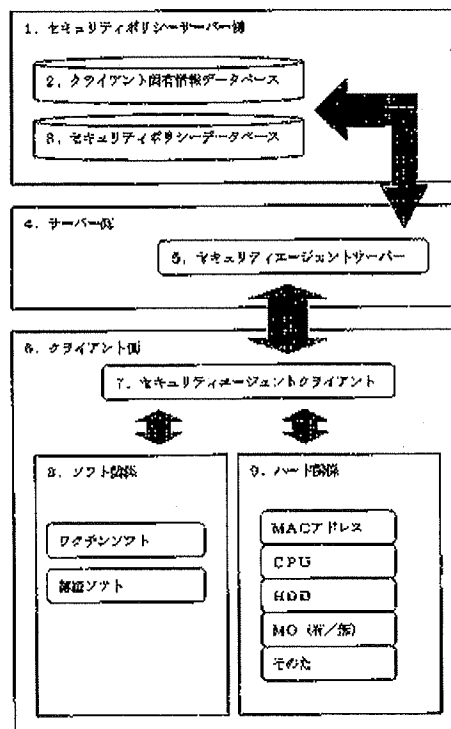 1. セキュリティポリシーサーバー側
2. クライアント固有情報データベース
3. セキュリティポリシーデータベース
4. サーバー側
5. セキュリティエージェントサーバー
6. クライアント側
7. セキュリティエージェントクライアント
8. ソフト関係
ワクチンソフト
ソフト
9. ハード関係
MACアドレス
CPU
HDD
MO (有/無)
そのた